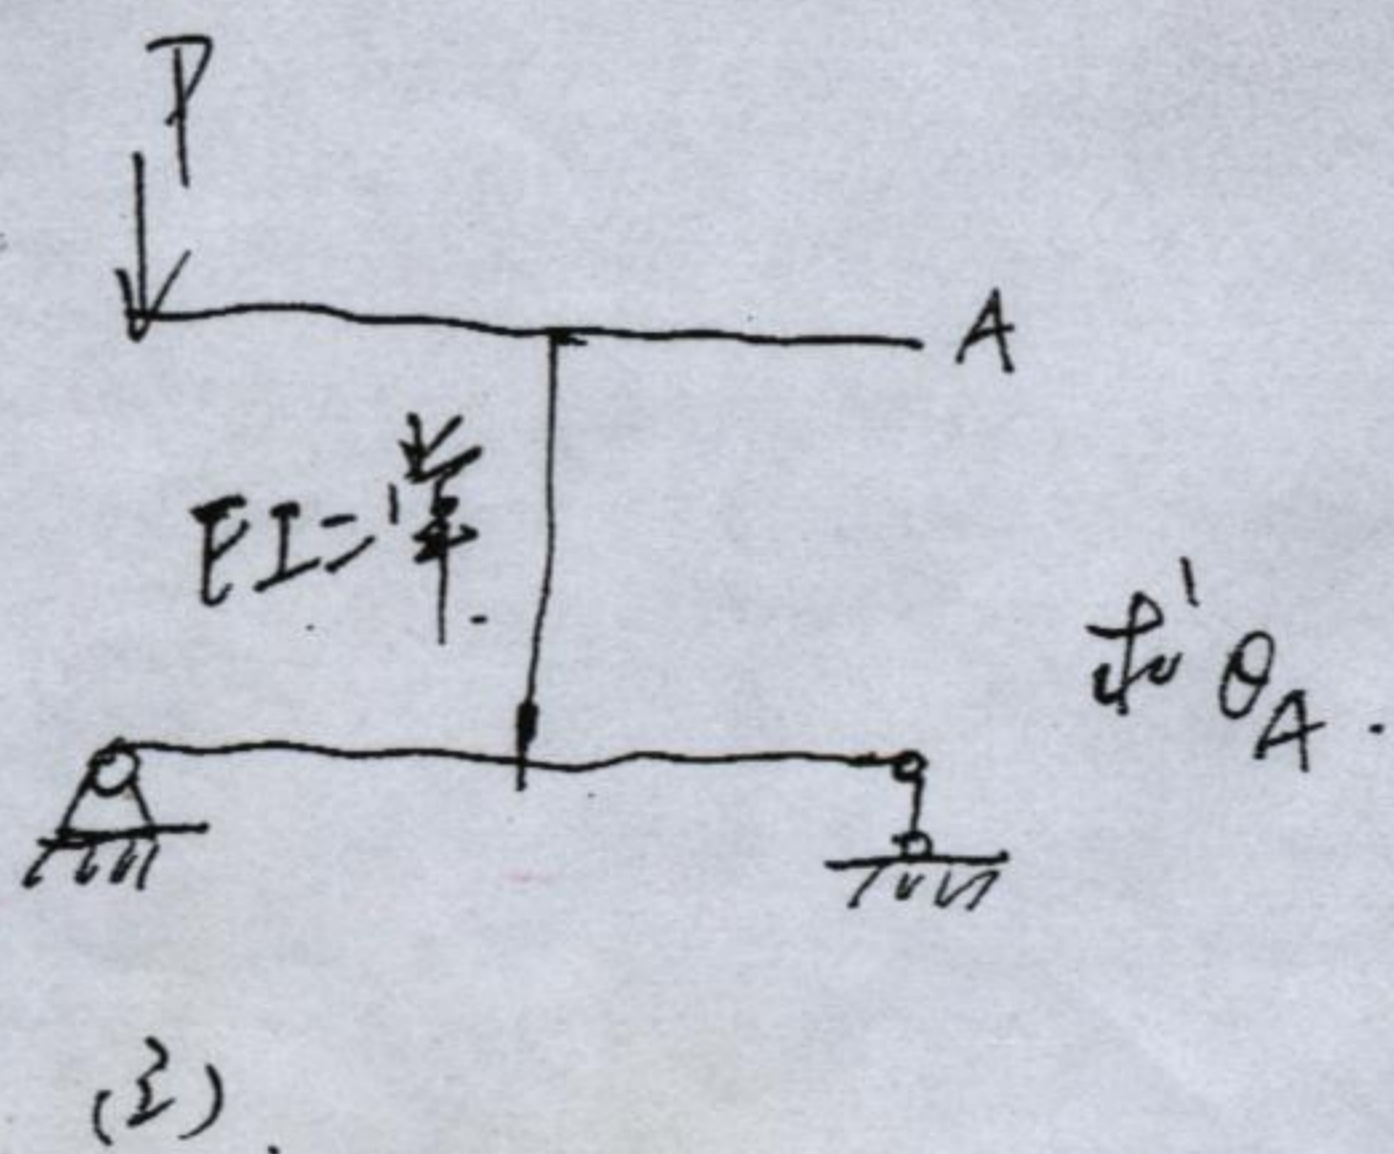 P
A
EI=常.
求θA.
(三).